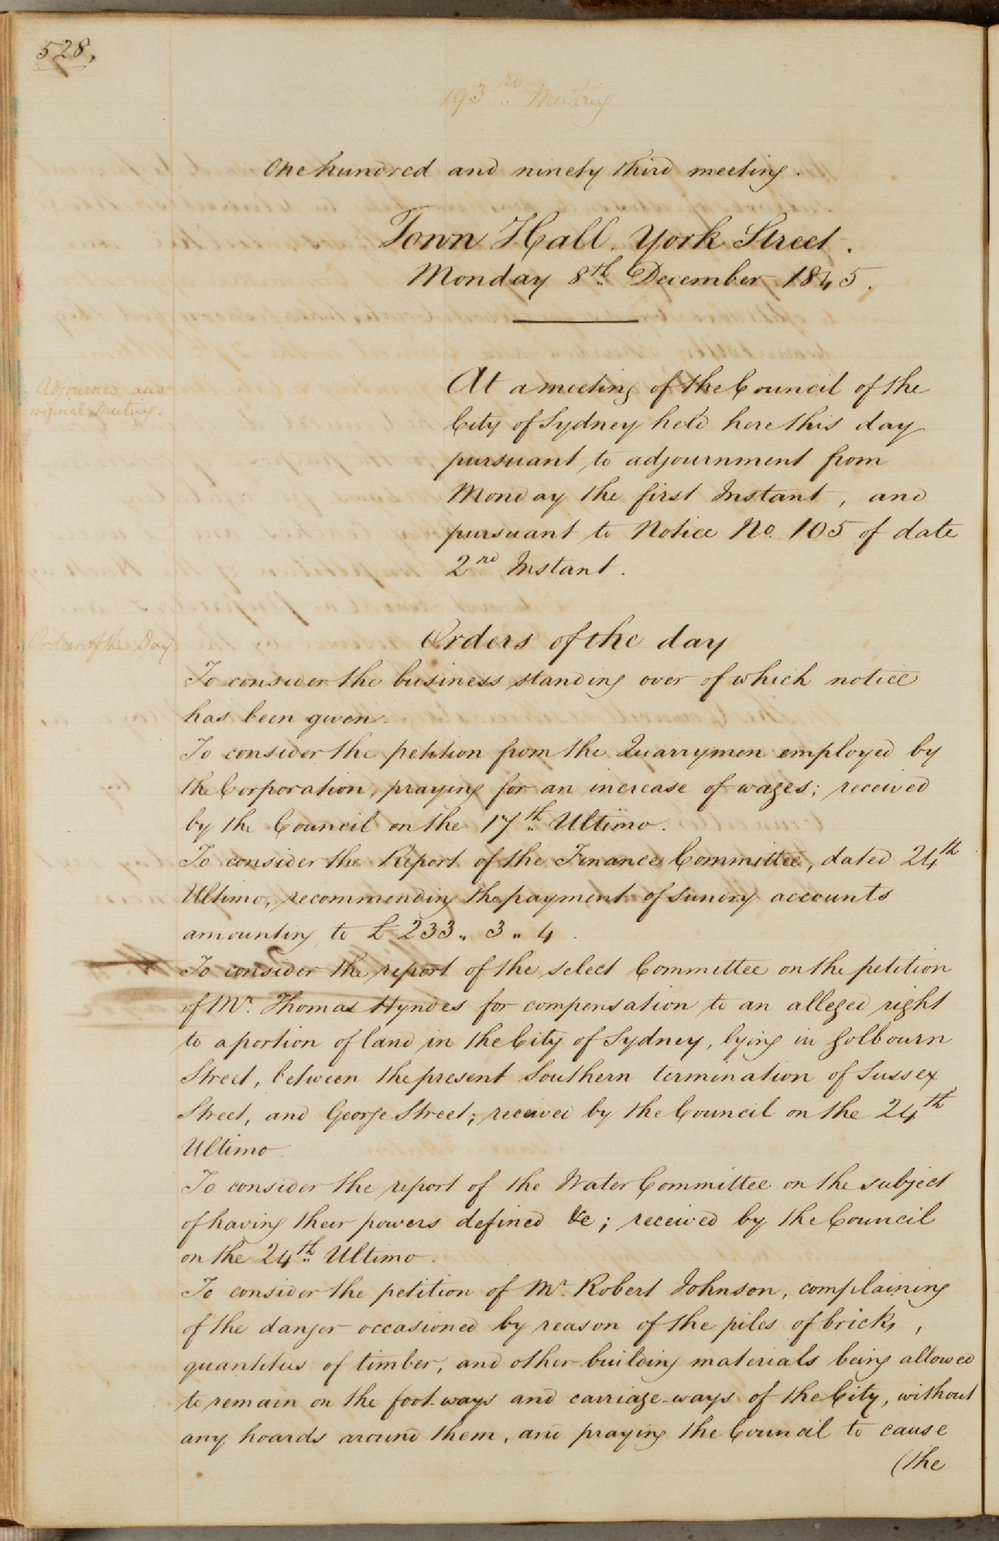 528,
193rd Meeting
One hundred and ninety third meeting.
Town Hall, York Street.
Monday 8th December 1845.
Adjourned and
original Meeting.
At a meeting of the Council of the
City of Sydney held here this day
pursuant to adjournment from
Monday the first Instant, and
pursuant to Notice No. 105 of date
2nd Instant.
Orders of the Day
Orders of the day
To consider the business standing over of which notice
has been given.
To consider the petition from the Quarrymen employed by
the Corporation, praying for an increase of wages; received
by the Council on the 17th Ultimo.
To consider the Report of the Finance Committee, dated 24th
Ultimo, recommending the payment of sundry accounts
amounting to £233.. 3.. 4.
To consider the report of the select Committee on the petition
of Mr. Thomas Hyndes for compensation to an alleged right
to a portion of land in the City of Sydney, lying in Golbourn
Street, between the present Southern termination of Sussex
Street, and George Street; received by the Council on the 24th
Ultimo.
To consider the report of the Water Committee on the subject
of having their powers defined &c; received by the Council
on the 24th Ultimo.
To consider the petition of Mr. Robert Johnson, complaining
of the danger occasioned by reason of the piles of bricks,
quantities of timber, and other building materials being allowed
to remain on the foot-ways and carriage-ways of the City, without
any hoards around them, and praying the Council to cause
(the